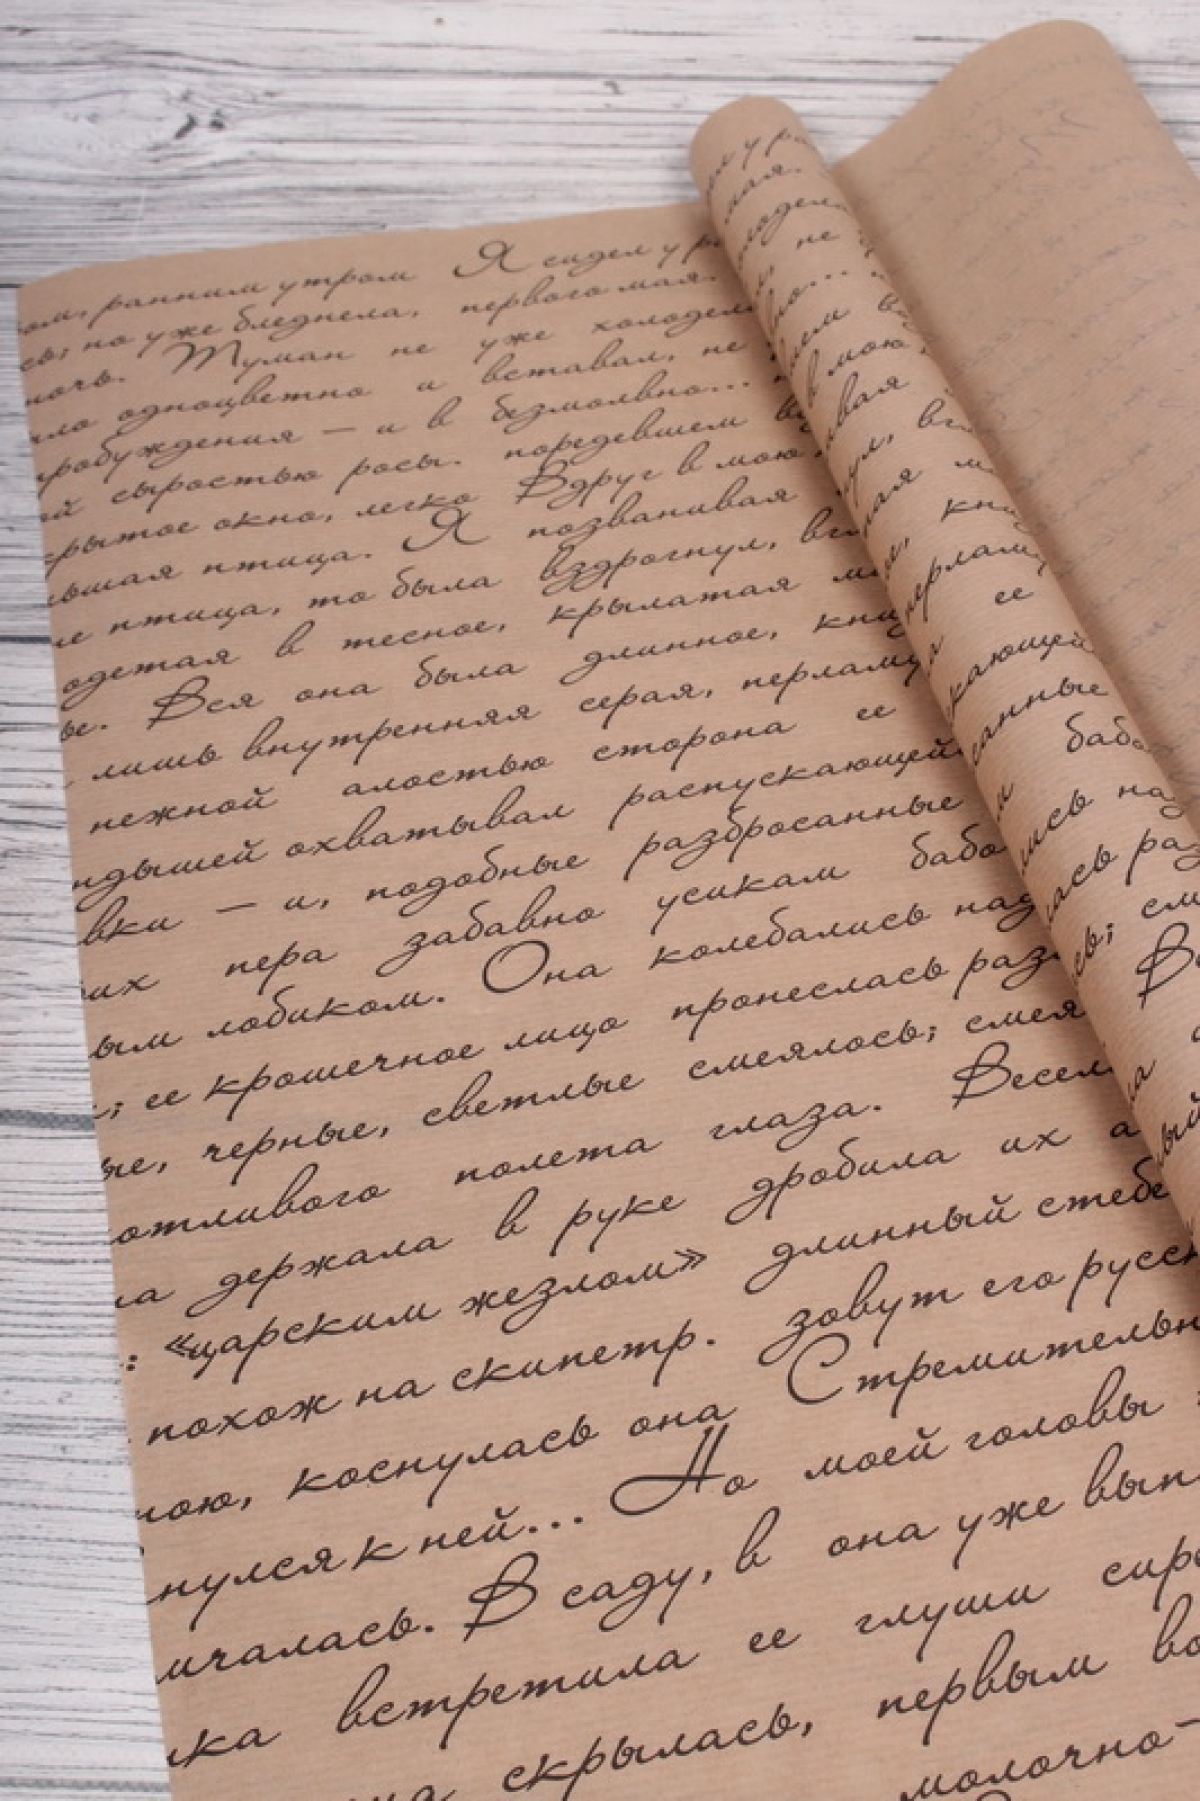 ранним утром Я сидел у
но уже бледнела, первого мая.
ночь. Туман не уже холодел
одноцветно и вставал, не
пробуждения — и в безмолвно...
сыростью росы. поредевшем
окно, легко Вдруг в мою
птица. Я позванивая
птица, то была вздрогнул,
одетая в тесное, крылатая
Вся она была длинное,
лишь внутренняя серая, перламу
нежной алостью сторона ее
охватывал распускающей
— и, подобные разбросанные
пера забавно усикам бабо
лобиком. Она колебались над
; ее крошечное лицо пронеслась раз
черные, светлые смеялось; смея
полета глаза. Весел
держала в руке дробила их а
: «царским жезлом» длинный стебе
похож на скипетр. зовут его русск
коснулась она Стремительн
нулся к ней... Но моей головы
мчалась. В саду, в она уже вып
встретила ее глуши сире
скрылась, первым во
молочно-